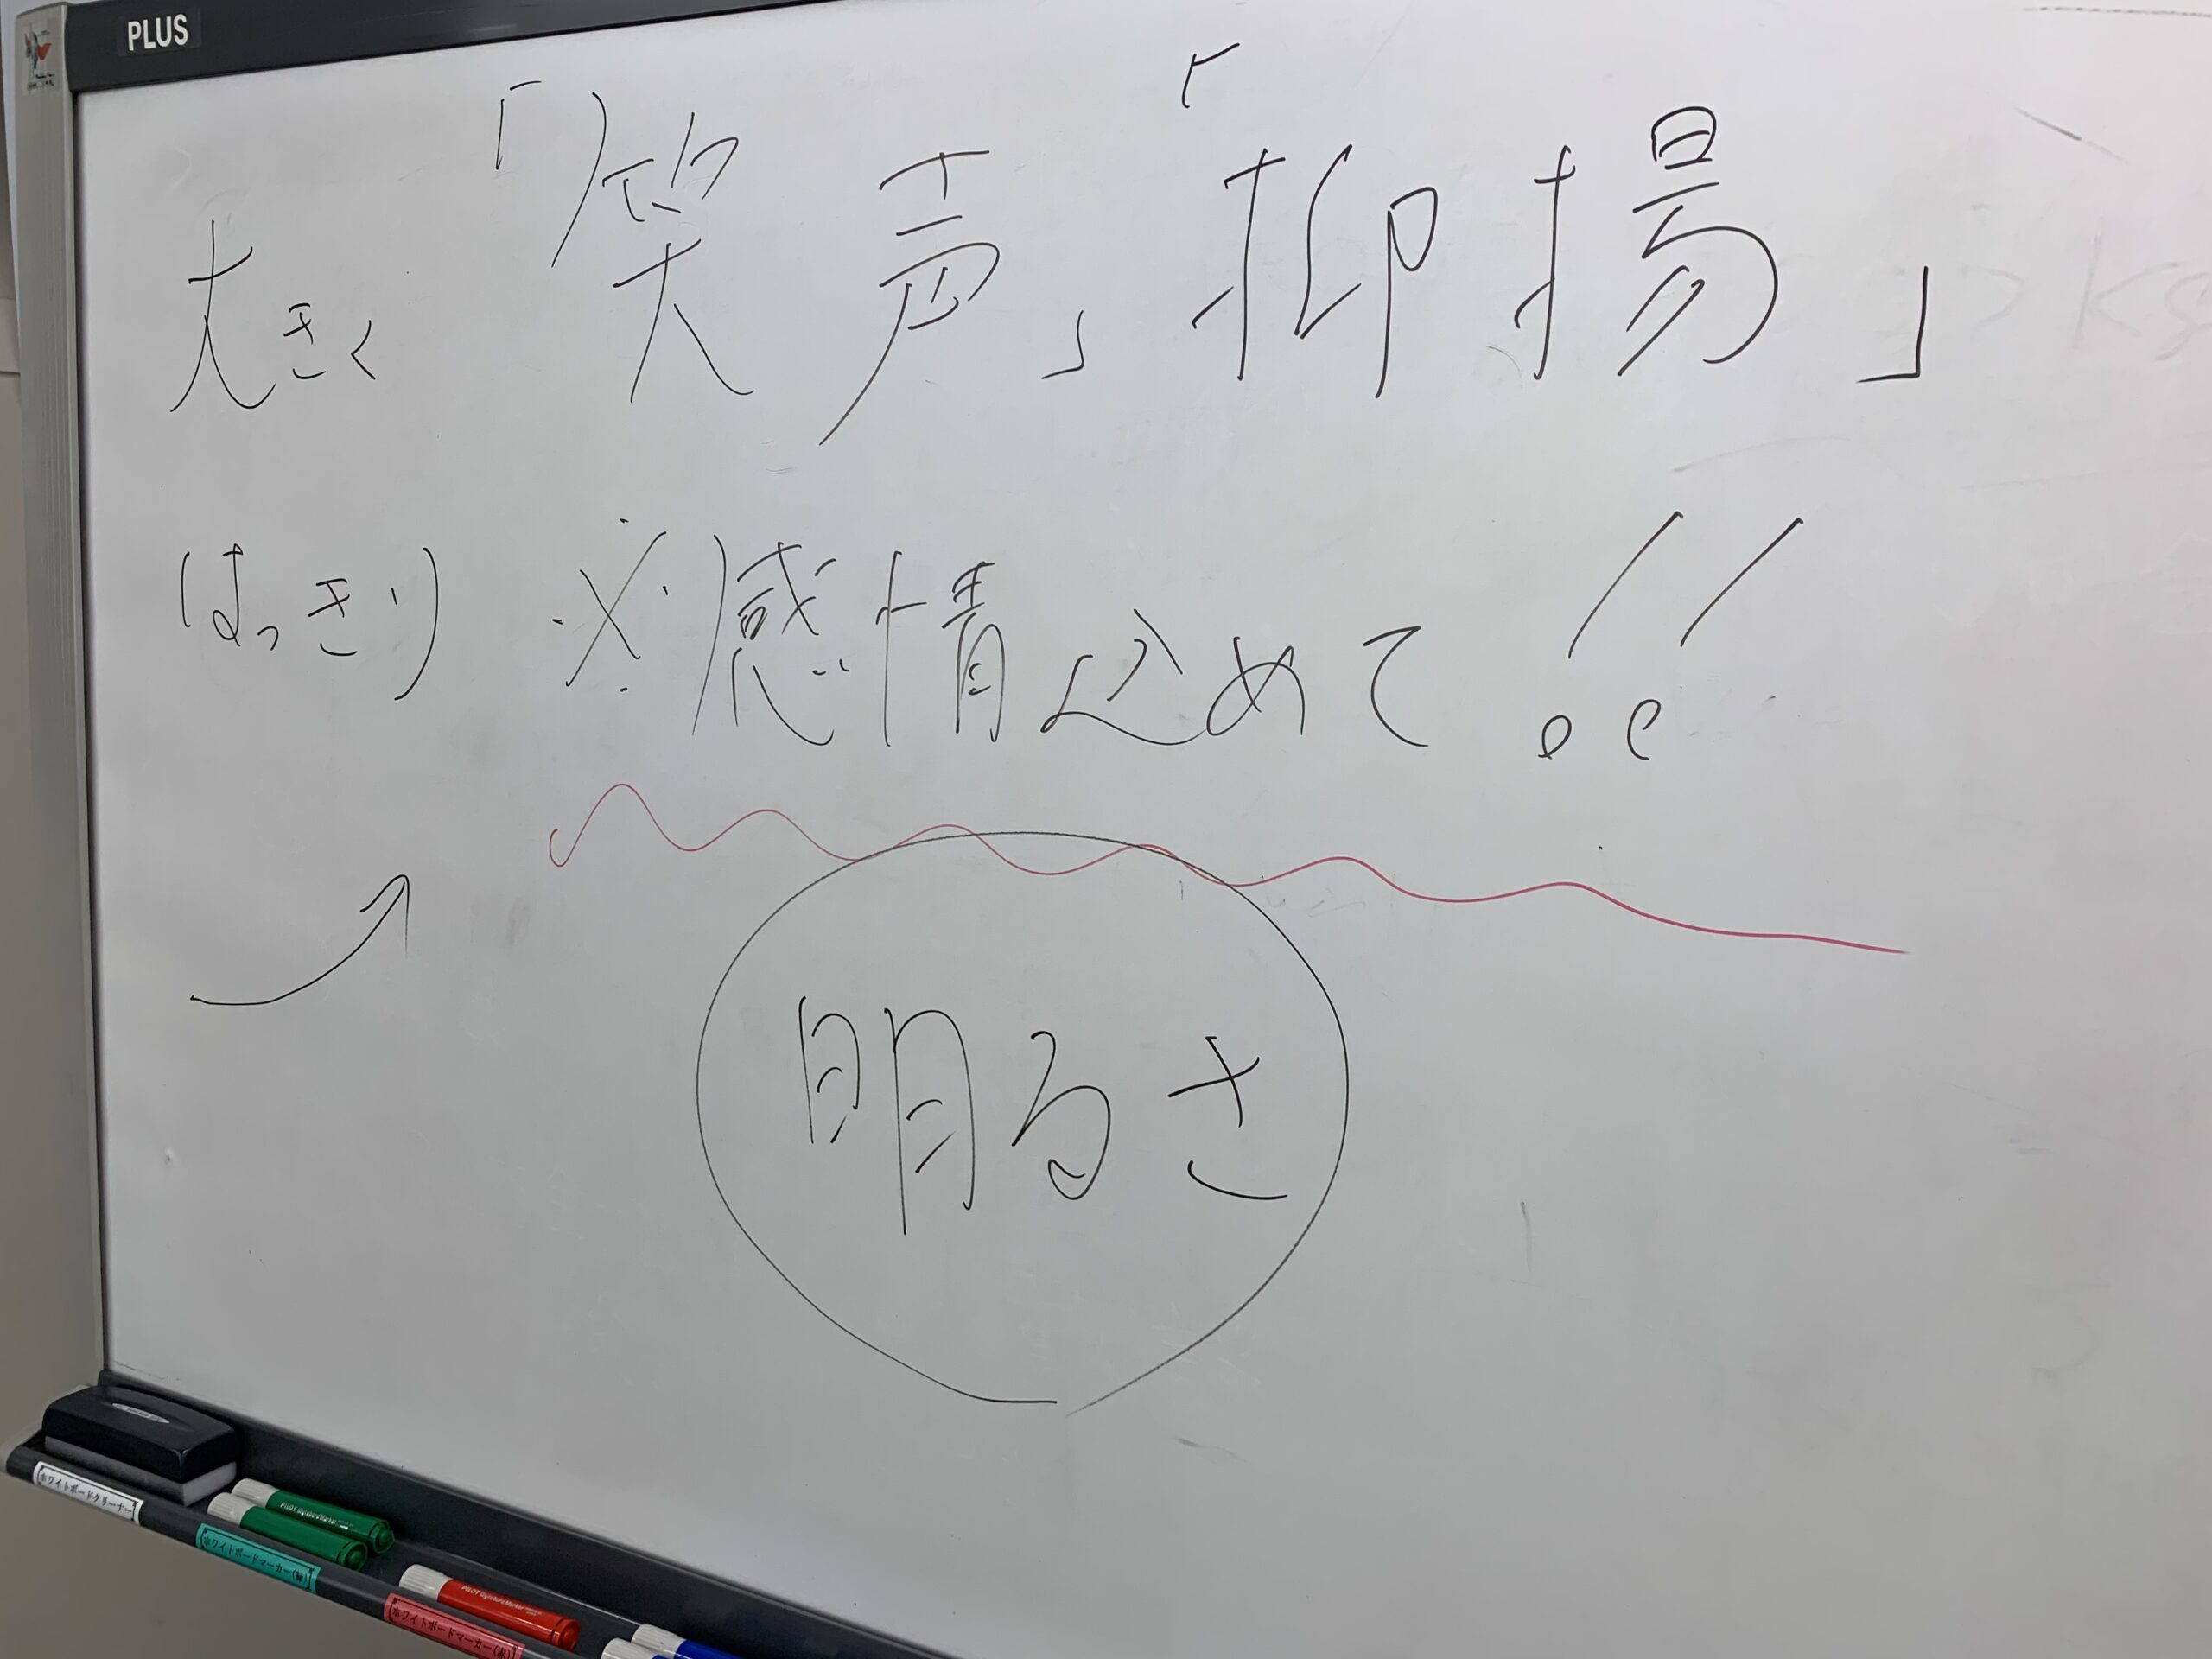 PLUS
大きく 「笑声」「抑揚」
はっきり ※感情込めて!!
明るさ
ホワイトボードクリーナー
ホワイトボードマーカー(緑)
ホワイトボードマーカー(赤)